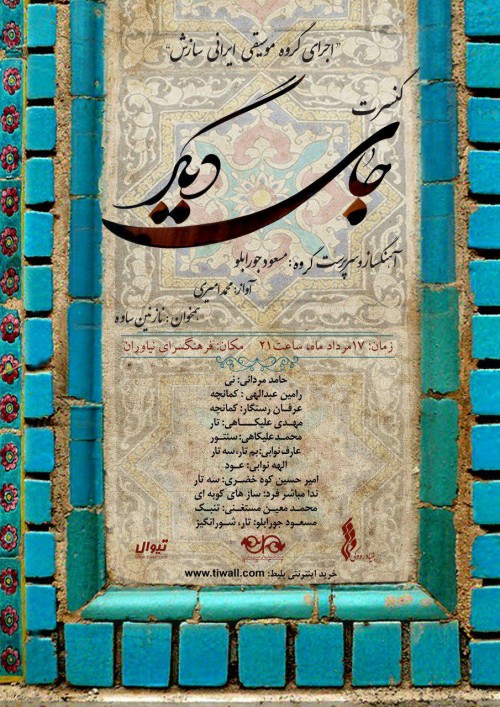 "اجرای گروه موسیقی ایرانی سازش"
کنسرت
جای دیگر
آهنگساز و سرپرست گروه: مسعود جورابلو
آواز: محمد امیری
همخوان: نازنین ساوه
زمان: ۱۷مرداد ماه، ساعت ۲۱ مکان: فرهنگسرای نیاوران
حامد مردانی: نی
رامین عبدالهی: کمانچه
عرفان رستگار: کمانچه
مهدی علیکاهی: تار
محمدعلیکاهی: سنتور
عارف نوایی: بم تار، سه تار
الهه نوایی: عود
امیر حسین کوه خضری: سه تار
ندا مباشر فرد: ساز های کوبه ای
محمد معین مستغنی: تنبک
مسعود جورابلو: تار، شورانگیز
تیوال
خرید اینترنتی بلیط: www.tiwall.com